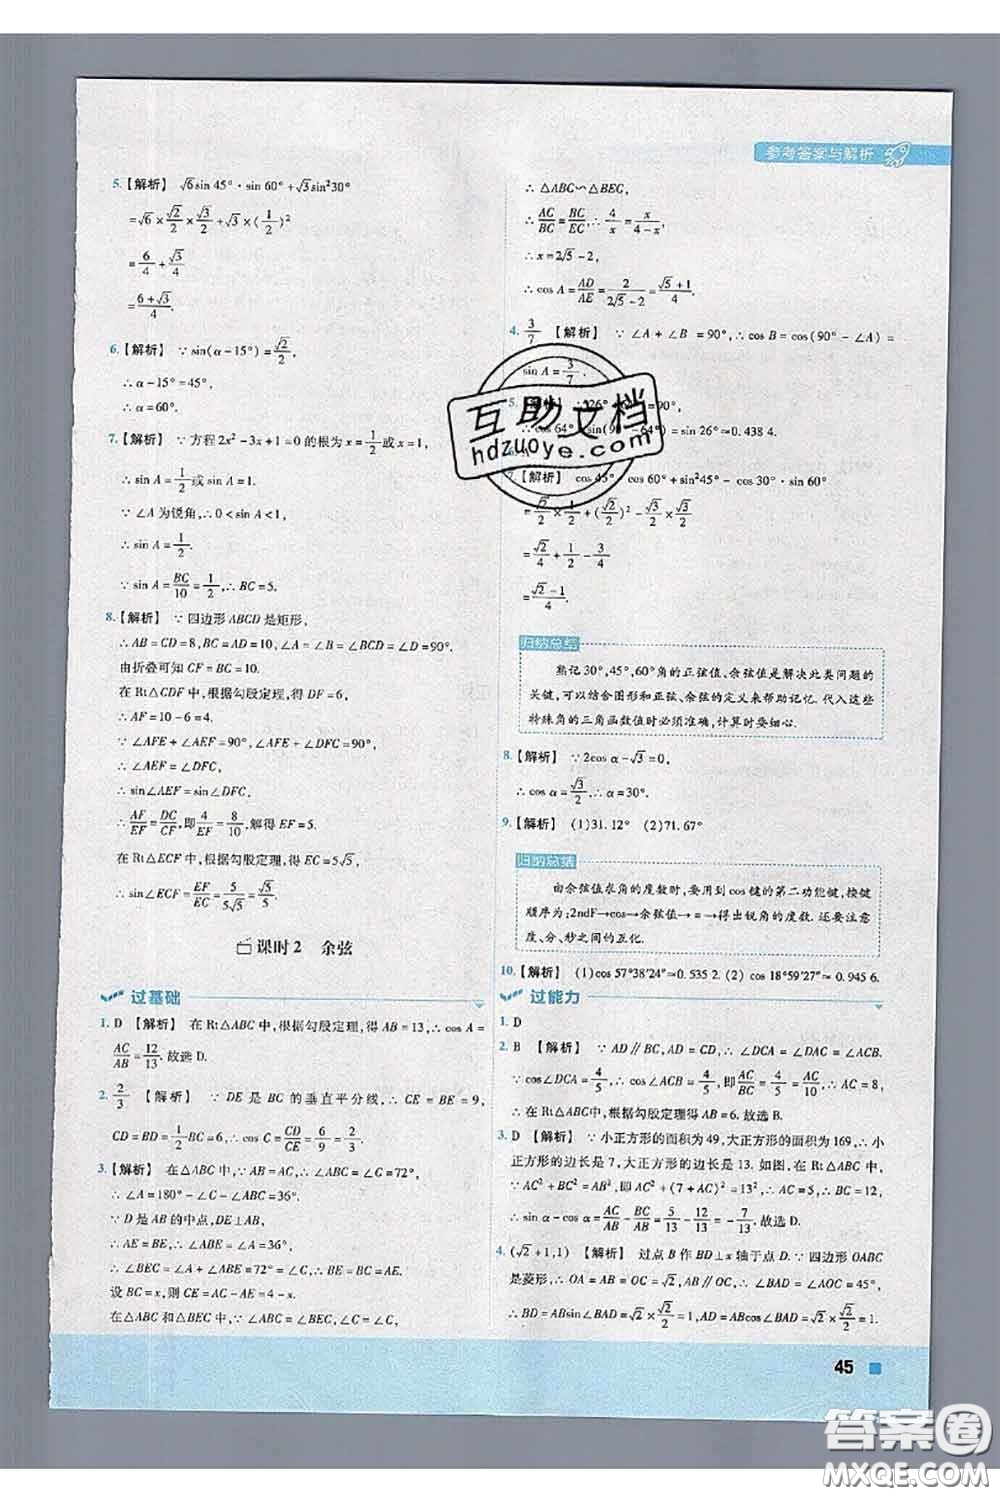 参考答案与解析
5.【解析】 √6sin 45°·sin 60°+√3sin²30°
=√6×√2/2×√3/2+√3×(1/2)²
=6/4+√3/4
=(6+√3)/4.
6.【解析】 ∵sin(α-15°)=√2/2,
∴α-15°=45°,
∴α=60°.
7.【解析】 ∵方程2x²-3x+1=0的根为x=1/2或x=1,
∴sin A=1/2或sin A=1.
∵∠A为锐角,∴0<sin A<1,
∴sin A=1/2.
∵sin A=BC/10=1/2,∴BC=5.
8.【解析】 ∵四边形ABCD是矩形,
∴AB=CD=8,BC=AD=10,∠A=∠B=∠BCD=∠D=90°.
由折叠可知CF=BC=10.
在Rt△CDF中,根据勾股定理,得DF=6,
∴AF=10-6=4.
∵∠AFE+∠AEF=90°,∠AFE+∠DFC=90°,
∴∠AEF=∠DFC,
∴sin∠AEF=sin∠DFC.
∴AF/EF=DC/CF,即4/EF=8/10,解得EF=5.
在Rt△ECF中,根据勾股定理,得EC=5√5,
∴sin∠ECF=EF/EC=5/5√5=√5/5.
课时2 余弦
过基础
1. D 【解析】 在Rt△ABC中,根据勾股定理,得AB=13,∴cos A=
AC/AB=12/13.故选D.
2. 2/3 【解析】 ∵DE是BC的垂直平分线,∴CE=BE=9,
CD=BD=1/2BC=6,∴cos C=CD/CE=6/9=2/3.
3.【解析】 在△ABC中,∵∠ABC=∠C=72°,
∴∠A=180°-∠C-∠ABC=36°.
∵D是AB的中点,DE⊥AB,
∴AE=BE,∴∠ABE=∠A=36°,
∴∠BEC=∠A+∠ABE=72°=∠C,∴BE=BC=AE.
设BC=x,则CE=AC-AE=4-x.
在△ABC和△BEC中,∵∠ABC=∠BEC,∠C=∠C,
∴△ABC∽△BEC,
∴AC/BC=BC/EC,∴4/x=x/(4-x),
∴x=2√5-2,
∴cos A=AD/AE=2/(2√5-2)=(√5+1)/4.
4. 3/7 【解析】 ∵∠A+∠B=90°,∴cos B=cos(90°-∠A)=
sin A=3/7.
5.
∴cos 64°=sin(90°-64°)=sin 26°≈0.438 4.
7.【解析】 cos 45° cos 60°+sin²45°-cos 30°·sin 60°
=√2/2×1/2+(√2/2)²-√3/2×√3/2
=√2/4+1/2-3/4
=(√2-1)/4.
归纳总结
熟记30°,45°,60°角的正弦值、余弦值是解决此类问题的
关键,可以结合图形和正弦、余弦的定义来帮助记忆.代入这些
特殊角的三角函数值时必须准确,计算时要细心.
8.【解析】 ∵2cos α-√3=0,
∴cos α=√3/2,∴α=30°.
9.【解析】 (1)31.12° (2)71.67°
归纳总结
由余弦值求角的度数时,要用到cos键的第二功能键,按键
顺序为:2ndF→cos→余弦值→=→得出锐角的度数.还要注意
度、分、秒之间的互化.
10.【解析】 (1)cos 57°38′24″≈0.535 2. (2) cos 18°59′27″≈0.945 6.
过能力
1. D
2. B 【解析】 ∵AD∥BC,AD=CD,∴∠DCA=∠DAC=∠ACB.
∵cos∠DCA=4/5,∴cos∠ACB=4/5,即AC/BC=4/5=AC/10,∴AC=8,
∴在Rt△ABC中,根据勾股定理得AB=6.故选B.
3. D 【解析】 ∵小正方形的面积为49,大正方形的面积为169,∴小
正方形的边长是7,大正方形的边长是13.如图,在Rt△ABC中,
∵AC²+BC²=AB²,即AC²+(7+AC)²=13²,∴AC=5,∴BC=12,
∴sin α-cos α=AC/AB-BC/AB=5/13-12/13=-7/13.故选D.
4. (√2+1,1) 【解析】 过点B作BD⊥x轴于点D.∵四边形OABC
是菱形,∴OA=AB=OC=√2,AB∥OC,∴∠BAD=∠AOC=45°,
∴BD=ABsin∠BAD=√2×√2/2=1,AD=ABcos∠BAD=√2×√2/2=1.
45
互助文档
hdzuoye.com
答案圈
MXQE.COM